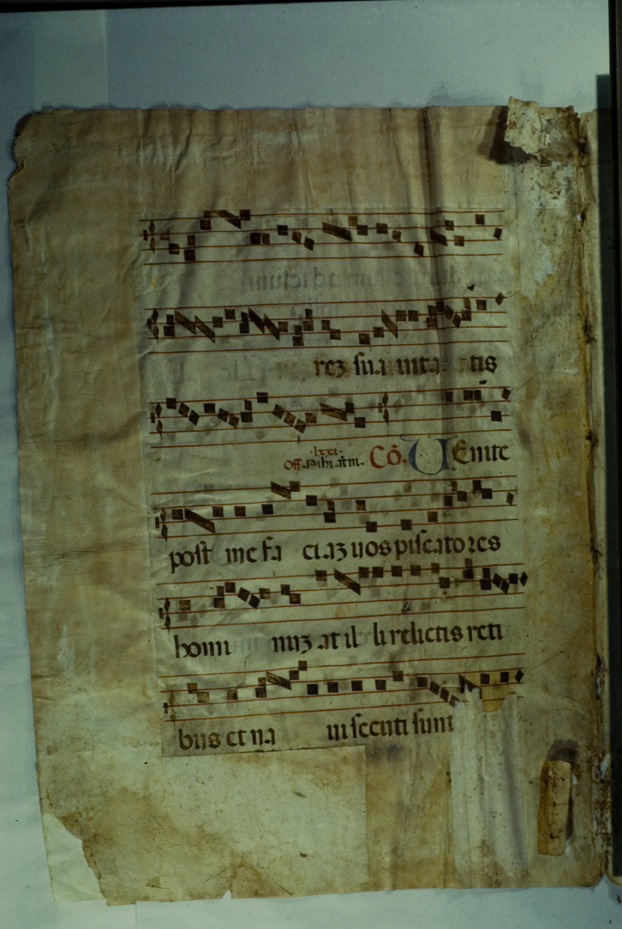 rez sua uita tis
.lxxi.
Off. Co. Uenite
post me fa ciaz uos piscatores
homi nuz at il li relictis reti
bus et na ui secuti sunt